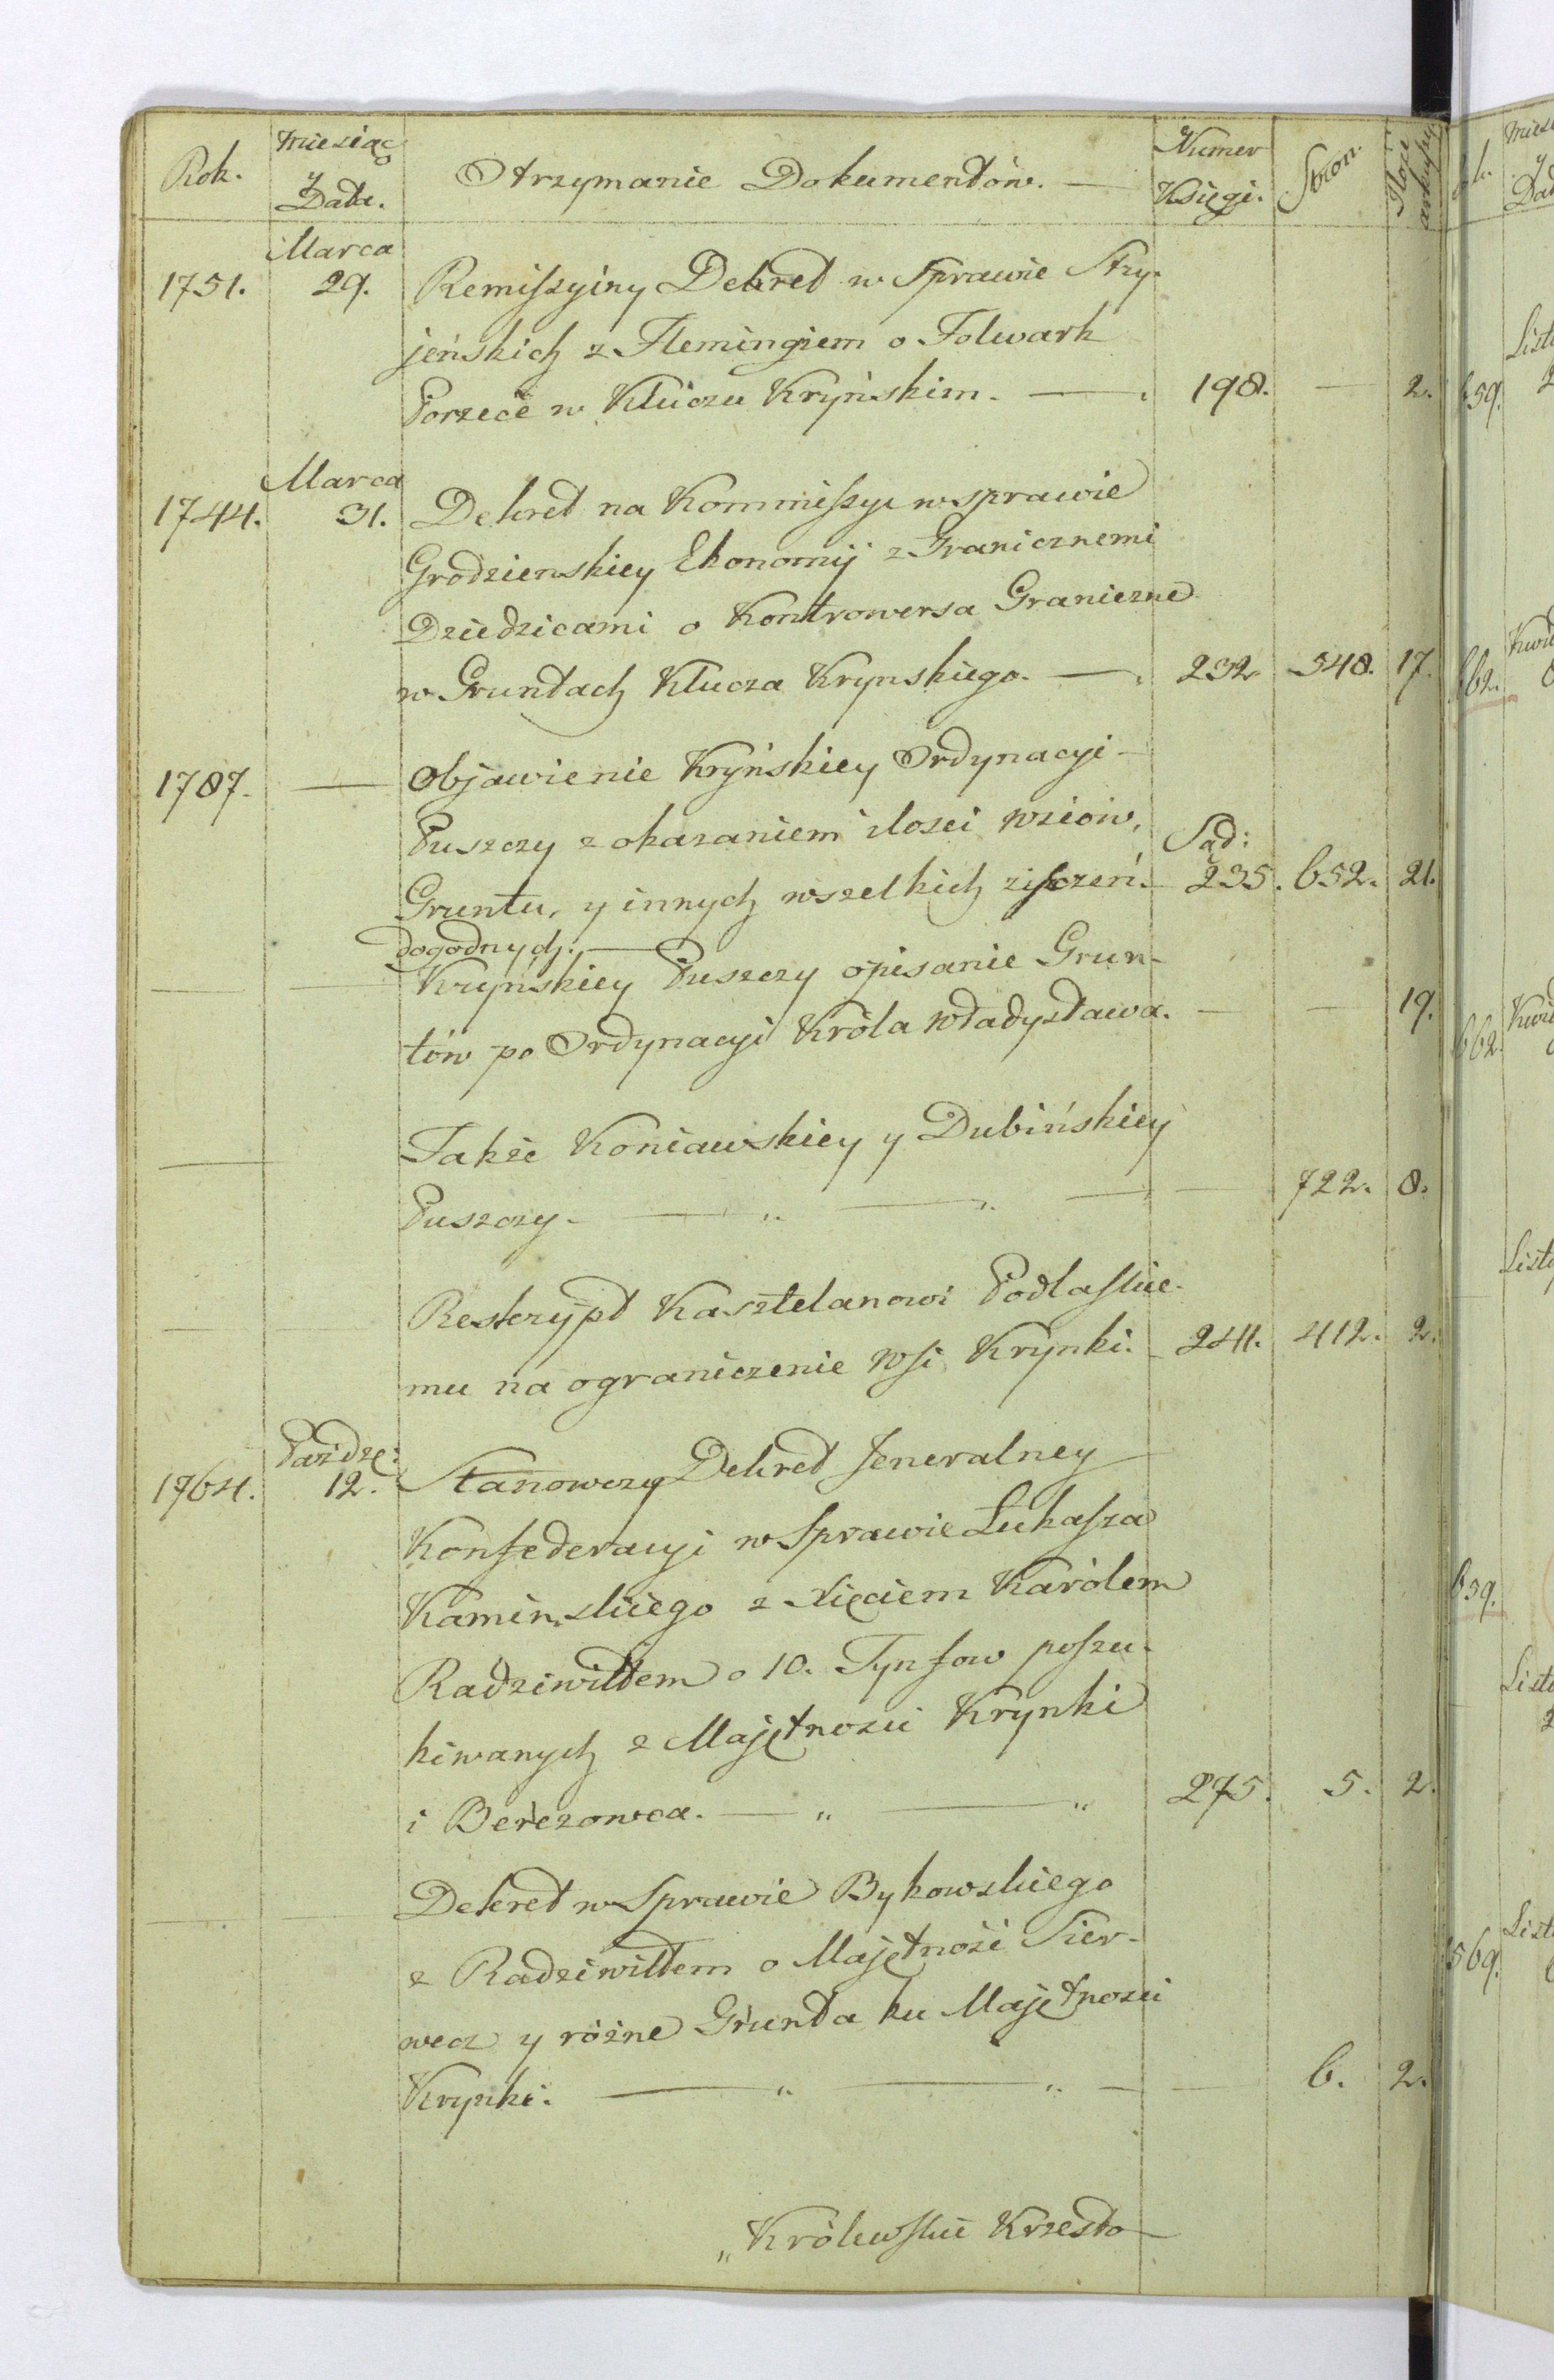 Rok. Miesiąc y Data. Otrzymanie Dokumentów. — Numer Księgi. Stron. Ilość arkuszy
Marca
1751. 29. Remiſzyiny Dekret w Sprawie Stry-
jeńskich z Flemingiem o Folwark
Porzecē w Kluczu Kryńskim. — 198. — 2.
Marca
1744. 31. Dekret na Kommiſsye w sprawie
Grodzienskiey Ekonomij z Granicznemi
Dziedzicami o Kontrowersa Graniczne
w Gruntach Klucza Krynskiego. — 232 548. 17.
1787. — Objawienie Kryńskiey Ordynacyi
Puszczy z okazaniem ilosci wsiow, Sąd:
Gruntu, y innych wszelkich ziſzczeń. 235. 652. 21.
dogodnych. —
— — Kryńskiey Puszczy opisanie Grun-
tów po Ordynacyi Króla Władysława. — — 19.
— Także Koniawskiey y Dubińskiey
Puszczy. — „ — „ — — 722. 8.
— — Reskrypt Kasztelanowi Podlaskie-
mu na ograniczenie Wsi Krynki. 241. 412. 2.
Paździ:
1764. 12. Stanowczy Dekret Jeneralney
Konfederacyi w Sprawie Łukaſza
Kaminskiego z Xięciem Karolem
Radziwiłłem o 10. Tynfow poſzu-
kiwanych z Majętnosci Krynki
i Berezowca. — „ — „ 275. 5. 2.
— — Dekret w Sprawie Bykowskiego
z Radziwiłłem o Majętność Sier-
wecz y różne Grunta ku Majętnosci
Krynki. — „ — „ — — 6. 2.
„Królewskie Krzesło